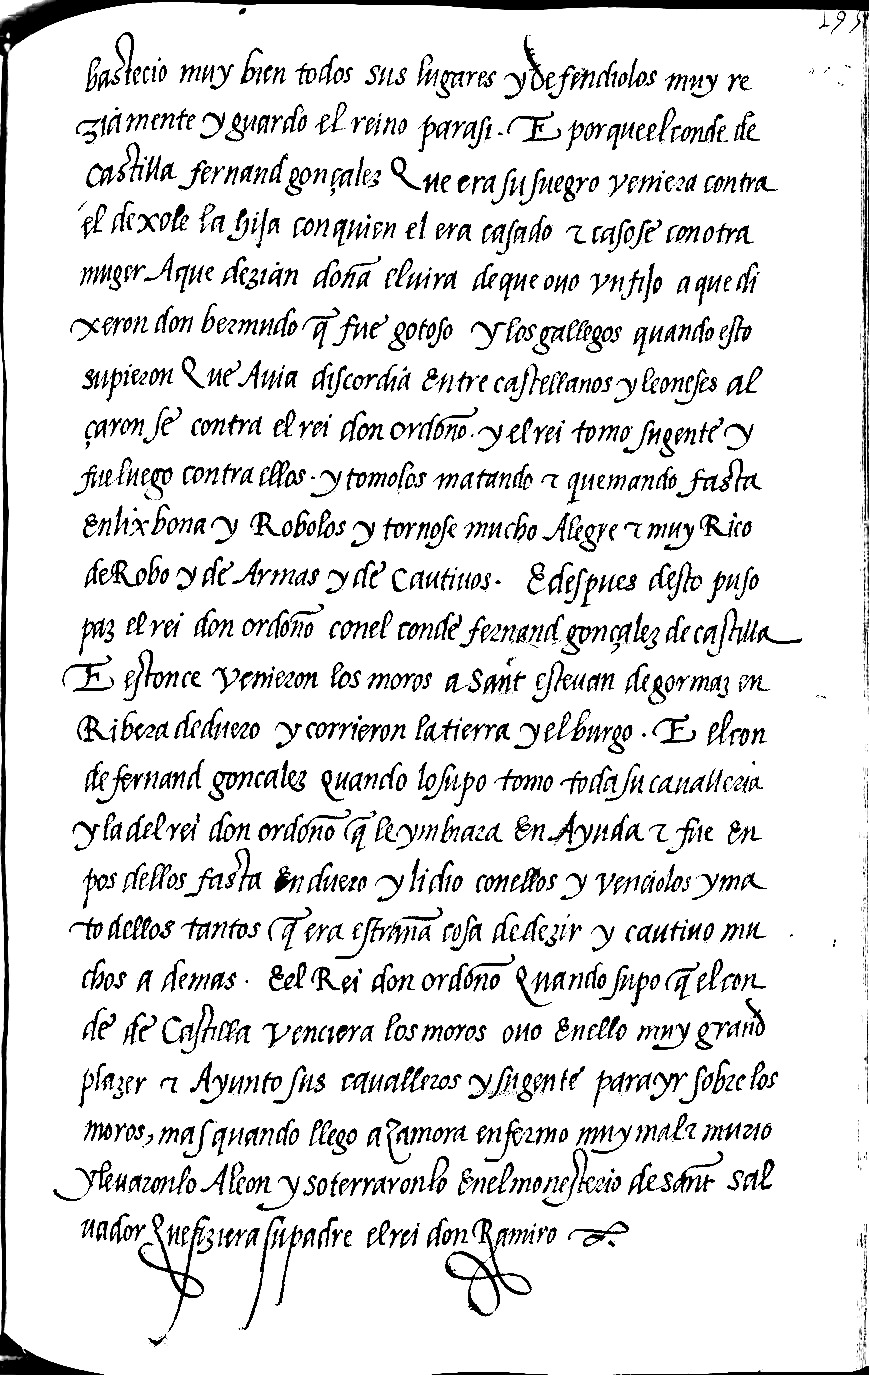 195
basteçio muy bien todos sus lugares y defendiolos muy re
ziamente y guardo el reino para si. E porque el conde de
Castilla fernand gonçalez Que era su suegro veniera contra
el dexole la hija con quien el era casado τ casose con otra
muger Aque dezian doña eluira de que ouo vn fijo a que di
xeron don bermudo q̃ fue gotoso y los gallegos quando esto
supieron Que Auia discordia Entre castellanos y leoneses al
çaron se contra el rei don ordoño. y el rei tomo su gente y
fue luego contra ellos. y tomolos matando τ quemando fasta
En lixbona y Robolos y tornose mucho Alegre τ muy Rico
de Robo y de Armas y de Cautiuos. E despues desto puso
paz el rei don ordoño con el conde fernand gonçalez de castilla
E estonce venieron los moros a sant esteuan de gormaz en
Ribera de duero y corrieron la tierra y el burgo. E el con
de fernand goncalez quando lo supo tomo toda su caualleria
y la del rei don ordoño q̃ le ymbiara En Ayuda τ fue En
pos dellos fasta En duero y lidio con ellos y venciolos y ma
to dellos tantos q̃ era estraña cosa de dezir y cautiuo mu
chos a demas. E el Rei don ordoño Quando supo q̃ el con
de de Castilla venciera los moros ouo En ello muy grand
plazer τ Ayunto sus caualleros y su gente para yr sobre los
moros, mas quando llego a Zamora enfermo muy mal τ murio
y leuaronlo A leon y soterraronlo En el monesterio de sant sal
uador Que fiziera su padre el rei don Ramiro